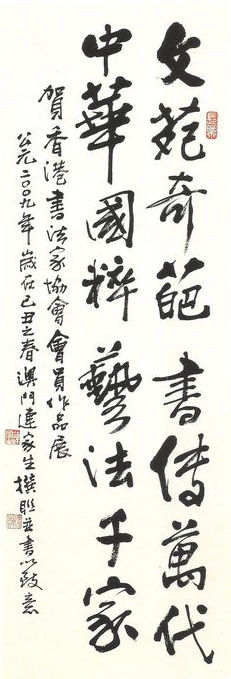 文苑奇葩書傳萬代
中華國粹藝法千家
賀香港書法家協會會員作品展
公元二〇〇九年歲在己丑之春澳門連家生撰聯並書以致意